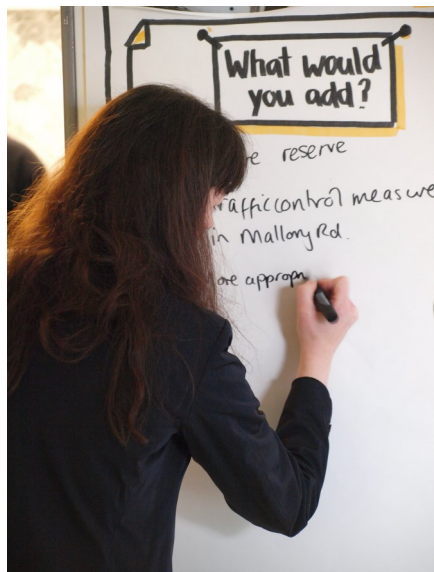 What would
you add?
reserve
traffic control measure
in Mallory Rd.
ore appropr